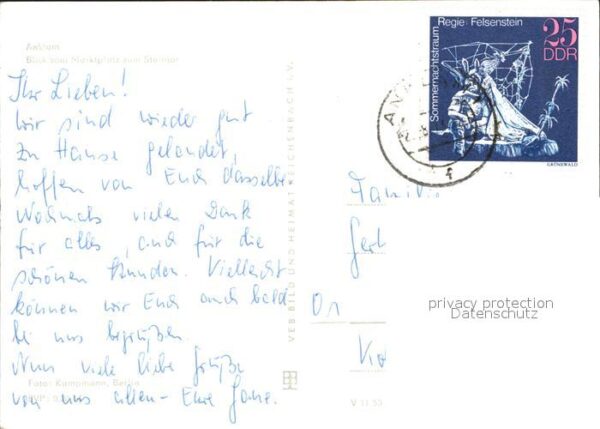 Anklam
Blick vom Marktplatz zum Steintor
Ihr Lieben!
wir sind wieder gut
zu Hause gelandet,
hoffen von Euch dasselbe
Nochmals vielen Dank
für alles, und für die
schönen Stunden. Vielleicht
können wir Euch auch bald
bei uns begrüßen.
Nun viele liebe Grüße
von uns allen - Eure
Foto: Kampmann, Berlin
VEB BILD UND HEIMAT REICHENBACH I. V.
V 11 50
Regie: Felsenstein
Sommernachtstraum
25
DDR
GRÜNEWALD
Famili
Gert
privacy protection
Datenschutz